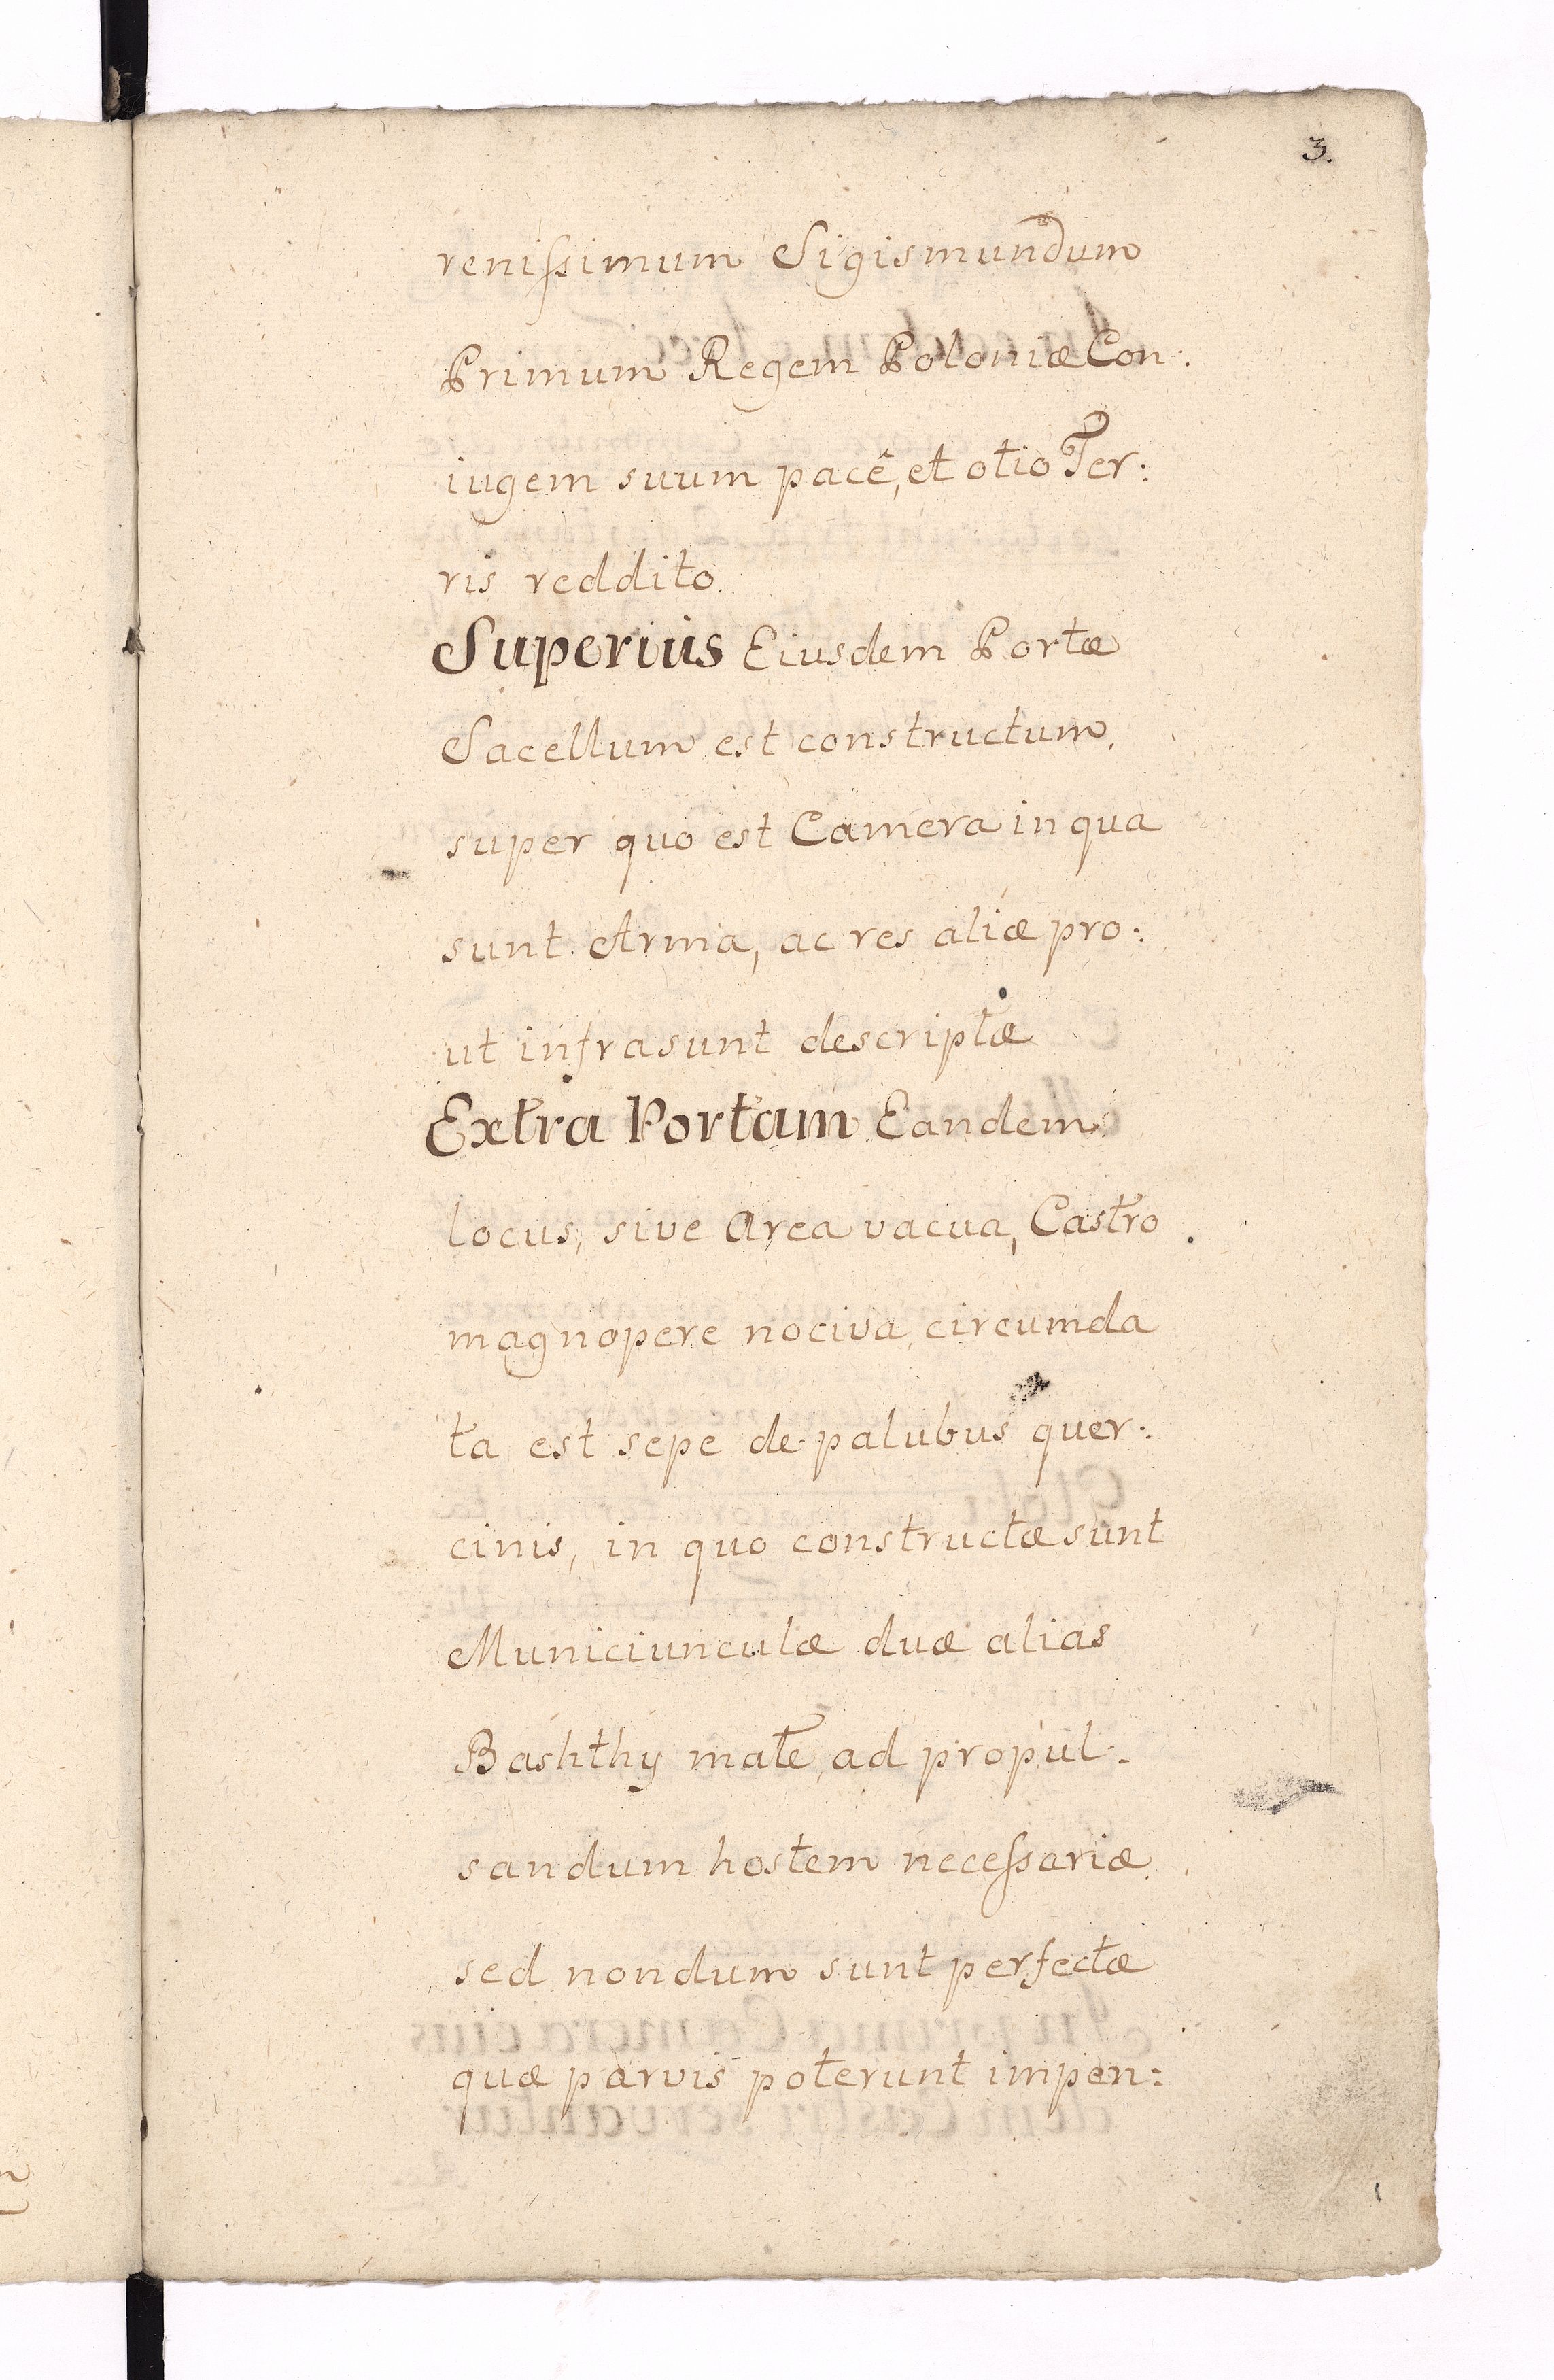 3.
reniſsimum Sigismundum
Primum Regem Poloniæ Con:
iugem suum pacê, et otio Ter:
ris reddito.
Superius Eiusdem Portæ
Sacellum est constructum,
super quo est Camera in qua
sunt Arma, ac res aliæ pro:
ut infra sunt descriptæ
Extra Portam Eandem
locus, sive Area vacua, Castro
magnopere nociva, circumda
ta est sepe de palubus quer:
cinis, in quo constructæ sunt
Municiunculæ duæ alias
Bashthy mate, ad propul:
sandum hostem neceſsariæ
sed nondum sunt perfectæ
quæ parvis poterunt impen: